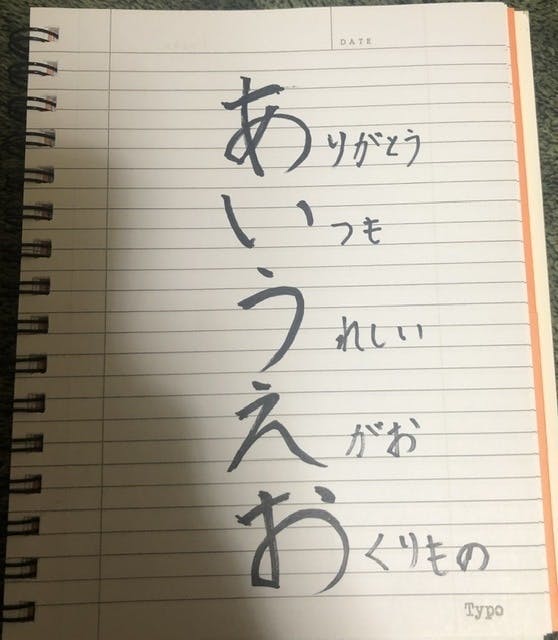 DATE
ありがとう
いつも
うれしい
えがお
おくりもの
Typo